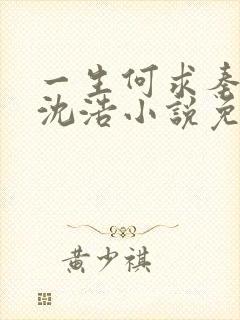 一生何求秦
沈浩小説免
黄少祺